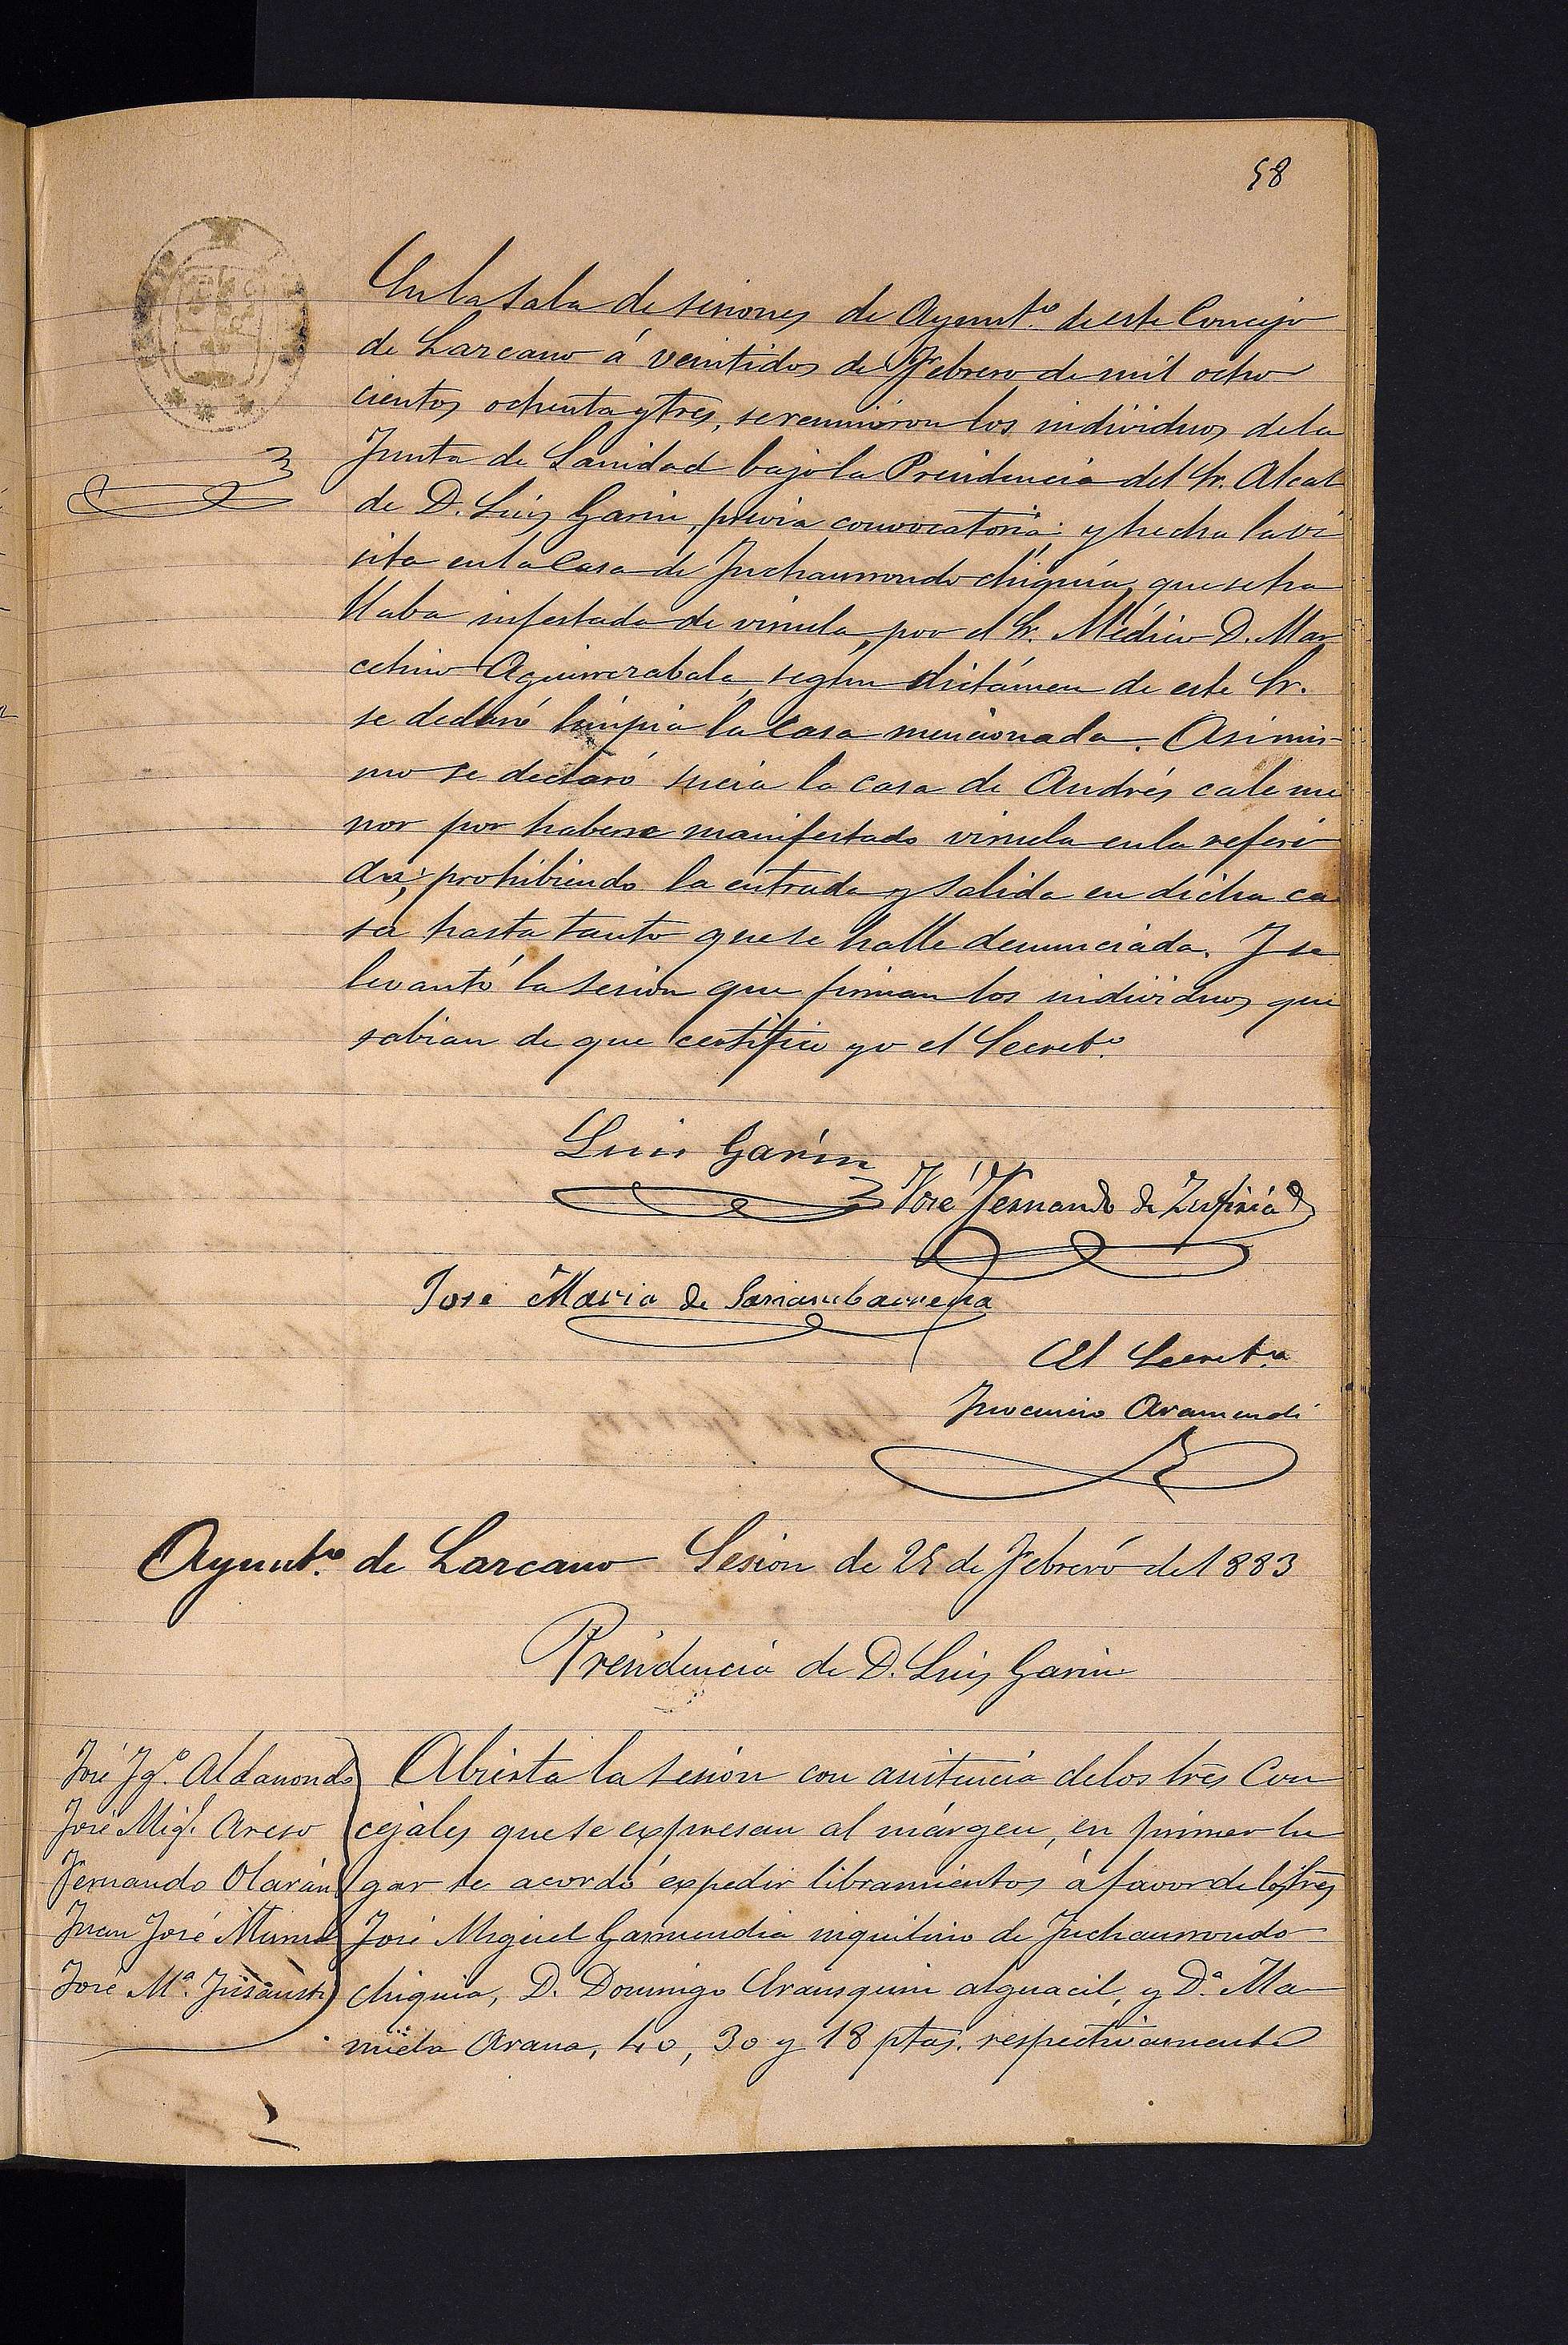 58
En la sala de sesiones de Ayunt.º de este Concejo
de Lazcano á veintidos de Febrero de mil ocho
cientos ochenta y tres, se reunieron los individuos de la
Junta de Sanidad bajo la Presidencia del Sr. Alcal
de D. Luis Garin, previa convocatoria: y hecha la vi
sita en la Casa de Inchaurrondo chiquia, que se ha
llaba infestada de viruela, por el Sr. Médico D. Mar
celino Aguirrezabala, según dictámen de este Sr.
se declaró limpia la Casa mencionada. Asimis-
mo se declaró sucia la casa de Andrés cale me
nor por haberse manifestado viruela en la referi
da; prohibiendo la entrada y salida en dicha ca
sa hasta tanto que se halle denunciada. Y se
levantó la sesion que firman los individuos que
sabian de que certifico yo el Secret.º
Luis Garin
José Fernando de Zufiria
José Maria de
El Secret.º
Inocencio Aramendi
Ayunt.º de Lazcano Sesion de 25 de Febrero de 1883
Presidencia de D. Luis Garin
José Ig.º Aldanondo
José Mig.l Areso
Fernando Olarán
Juan José
José M.ª
Abierta la sesión con asistencia de los tres Con
cejales que se expresan al márgen, en primer lu
gar se acordó expedir libramientos á favor de los tres
José Miguel Garmendia inquilino de Inchaurrondo
chiquia, D. Domingo Urausquin alguacil, y D.ª Ma
nuela Arana, 40, 30 y 18 ptas. respectivamente